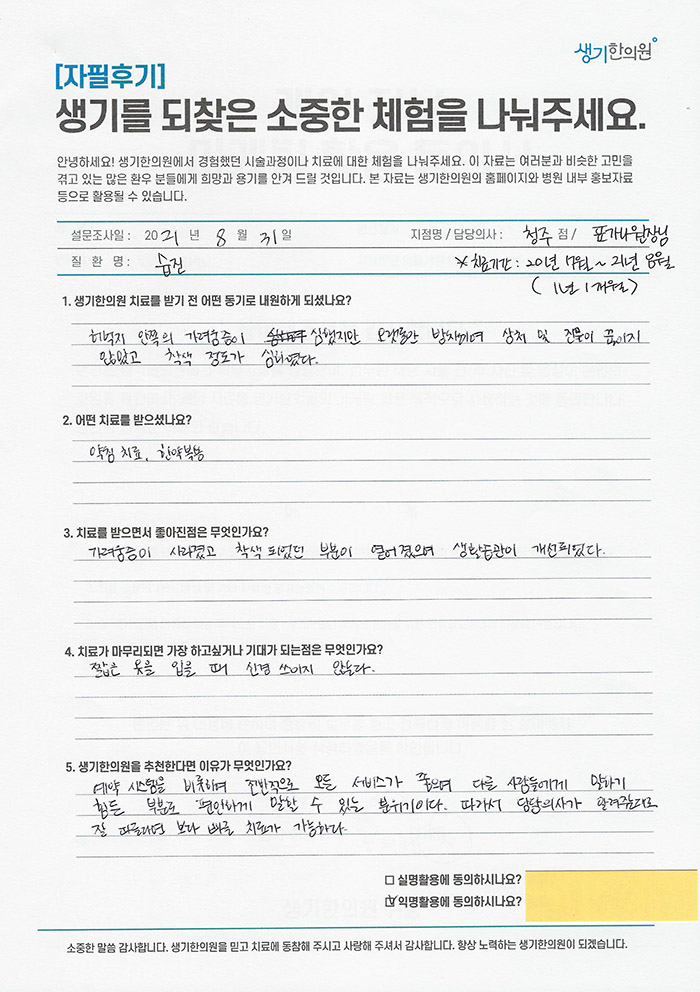 생기한의원
[자필후기]
생기를 되찾은 소중한 체험을 나눠주세요.
안녕하세요! 생기한의원에서 경험했던 시술과정이나 치료에 대한 체험을 나눠주세요. 이 자료는 여러분과 비슷한 고민을
겪고 있는 많은 환우 분들에게 희망과 용기를 안겨 드릴 것입니다. 본 자료는 생기한의원의 홈페이지와 병원 내부 홍보자료
등으로 활용될 수 있습니다.
설문조사일 : 2021 년 8 월 31 일 지점명 / 담당의사 : 청주 점 / 표가나 원장님
질 환 명 : 습진 ※ 치료기간 : 20년 7월 ~ 21년 8월
( 1년 1개월 )
1. 생기한의원 치료를 받기 전 어떤 동기로 내원하게 되셨나요?
허벅지 안쪽의 가려움증이 심했지만 오랫동안 방치하며 상처 및 진물이 끊이지
않았고 착색 정도가 심하였다.
2. 어떤 치료를 받으셨나요?
약침 치료, 한약복용
3. 치료를 받으면서 좋아진점은 무엇인가요?
가려움증이 사라졌고 착색 되었던 부분이 옅어졌으며 생활습관이 개선되었다.
4. 치료가 마무리되면 가장 하고싶거나 기대가 되는점은 무엇인가요?
짧은 옷을 입을 때 신경 쓰이지 않는다.
5. 생기한의원을 추천한다면 이유가 무엇인가요?
예약 시스템을 비롯하여 전반적으로 모든 서비스가 좋으며 다른 사람들에게 말하기
힘든 부분도 편안하게 말할 수 있는 분위기이다. 따라서 담당의사가 알려주는대로
잘 따른다면 보다 빠른 치료가 가능하다.
□ 실명활용에 동의하시나요?
☑ 익명활용에 동의하시나요?
소중한 말씀 감사합니다. 생기한의원을 믿고 치료에 동참해 주시고 사랑해 주셔서 감사합니다. 항상 노력하는 생기한의원이 되겠습니다.